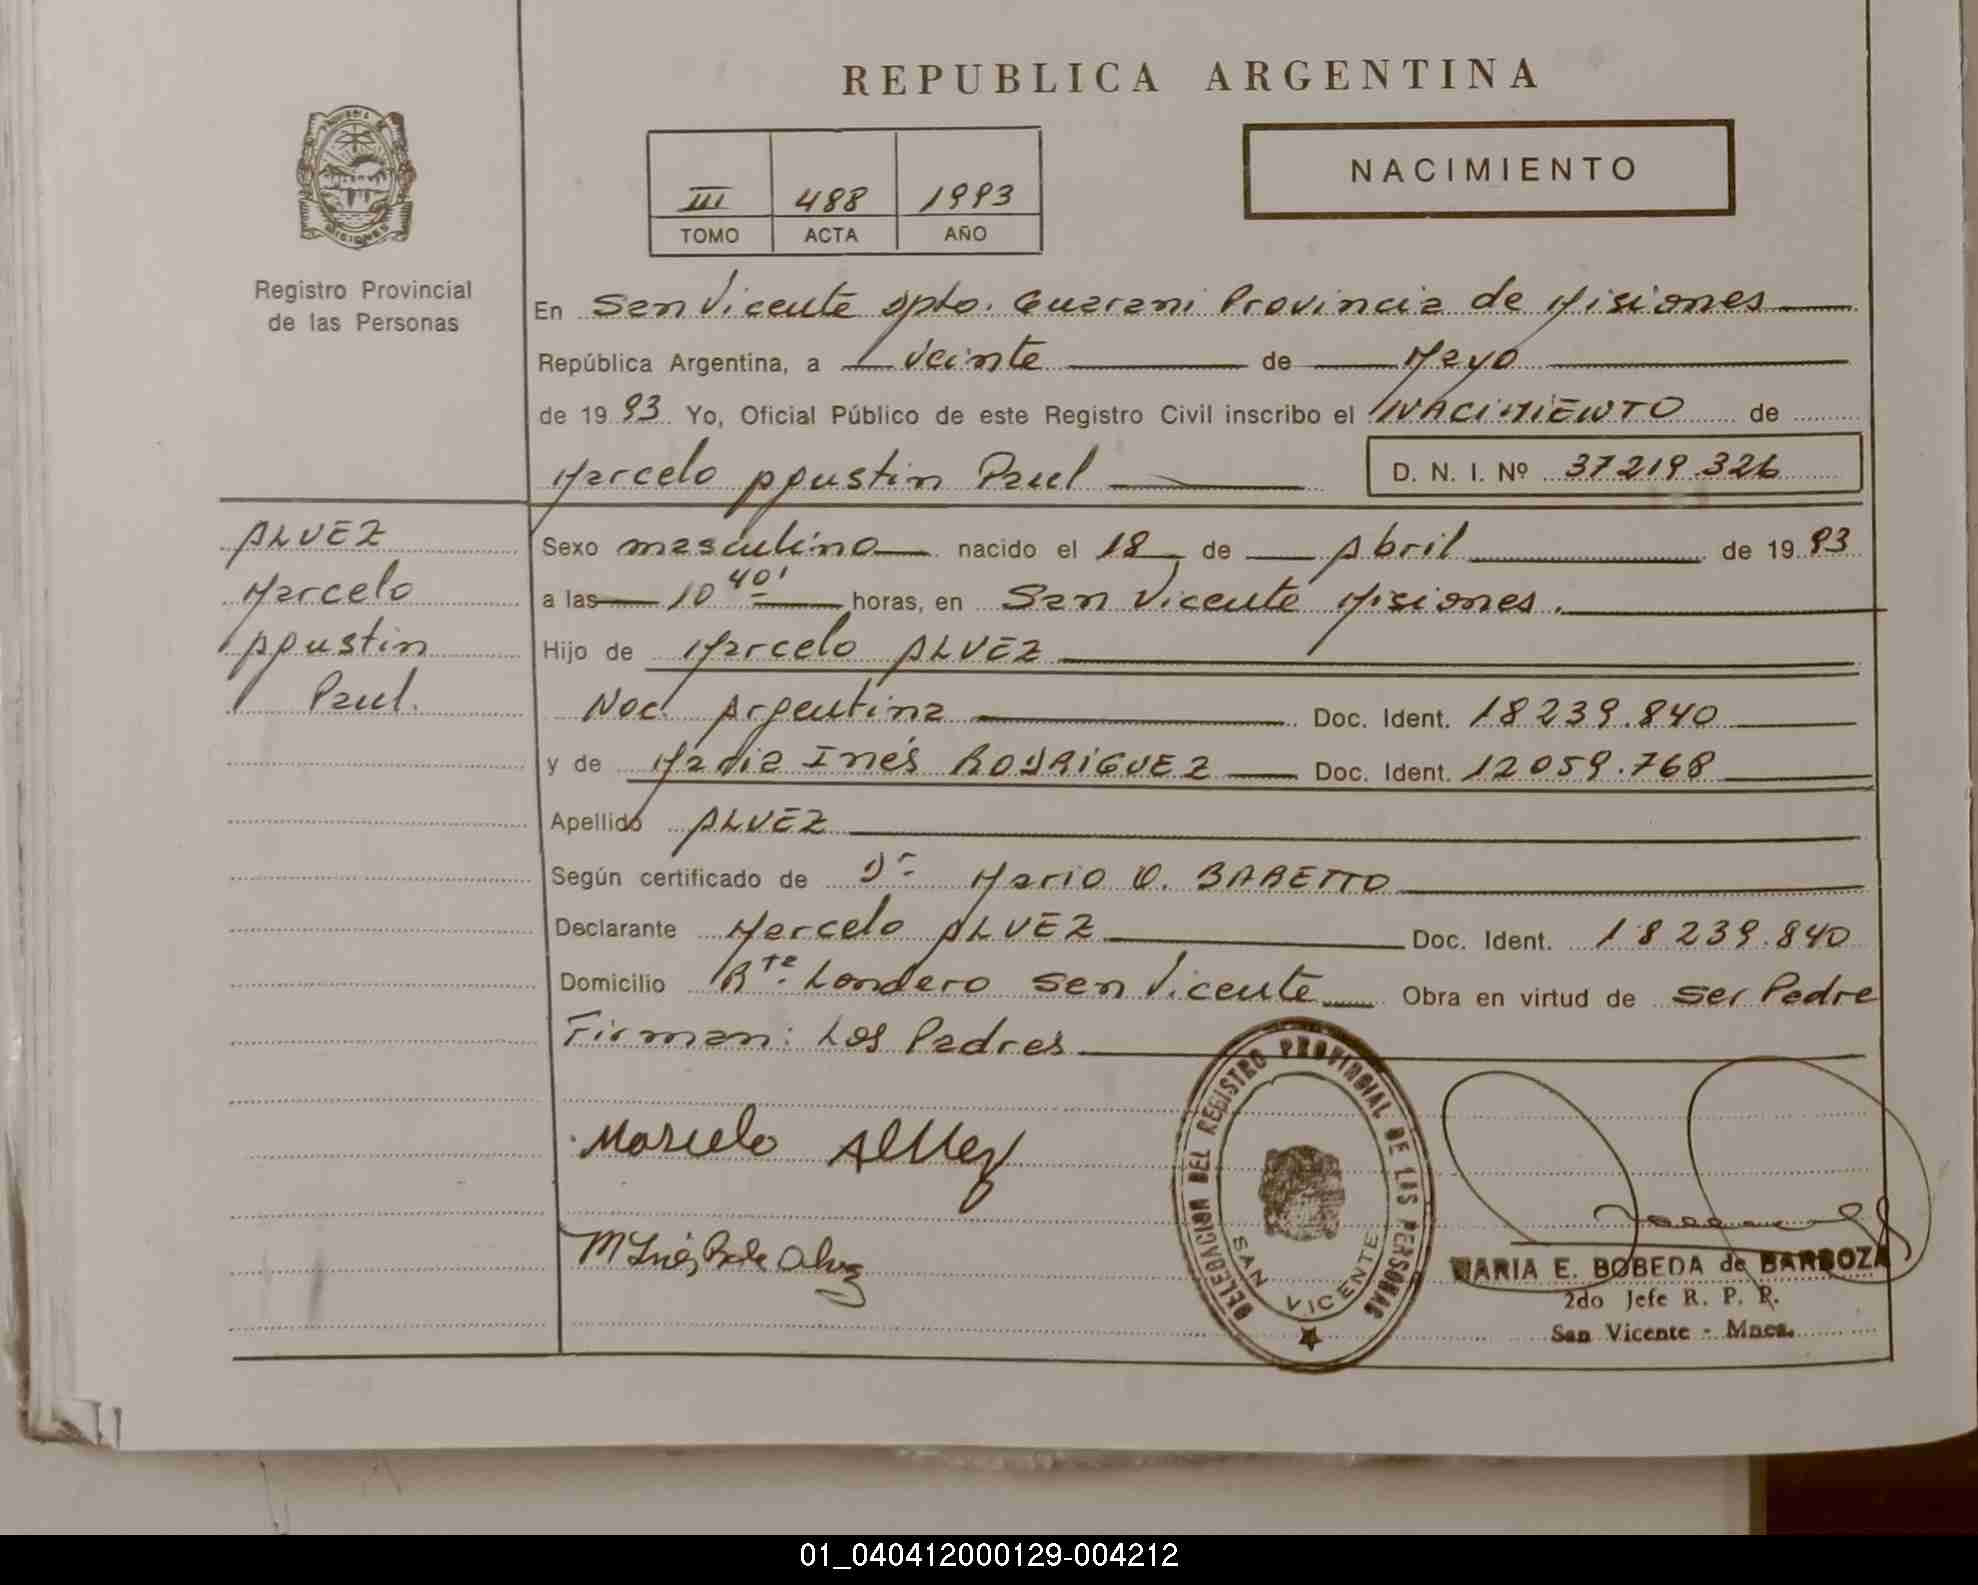 REPUBLICA ARGENTINA
NACIMIENTO
III 488 1993
TOMO ACTA AÑO
Registro Provincial
de las Personas
En San Vicente Dpto. Guarani Provincia de Misiones
República Argentina, a Veinte de Mayo
de 1993 Yo, Oficial Público de este Registro Civil inscribo el NACIMIENTO de
Marcelo Agustin Raul D. N. I. Nº 37219.326
ALVEZ
Marcelo
Agustin
Raul.
Sexo masculino nacido el 18 de Abril de 1993
a las 10 40' horas, en San Vicente Misiones.
Hijo de Marcelo ALVEZ
Nac. Argentina Doc. Ident. 18239.840
y de Maria Inés RODRIGUEZ Doc. Ident. 12059.768
Apellido ALVEZ
Según certificado de Dr Mario O. BARETTO
Declarante Marcelo ALVEZ Doc. Ident. 18239.840
Domicilio Rte. Londero San Vicente Obra en virtud de ser Padre
Firman: Los Padres
Marcelo Alvez
M Inés de Alvez
DELEGACION DEL REGISTRO PROVINCIAL DE LAS PERSONAS
SAN VICENTE
MARIA E. BOBEDA de BARBOZA
2do Jefe R. P. P.
San Vicente - Mnes.
01_040412000129-004212